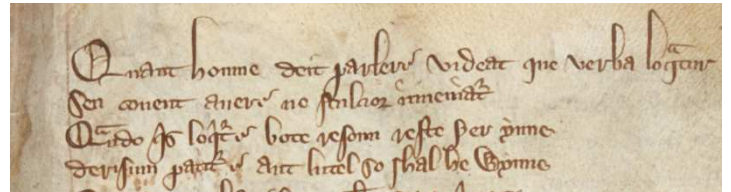 Quant honme deit parlere videat que verba loqatur
Sen covent avere ne stulcior inveniatr
Qando qis loqitr bote resoun reste þer ynne
derisum patitr ant lutel so shal he wynne